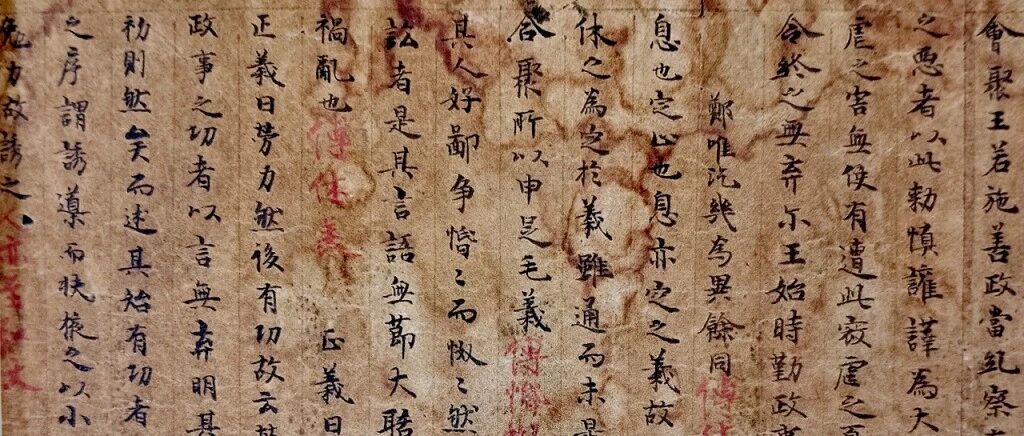 會聚王若施善政當乣察
之惡者以此勅慎讙謹為大
虐之害無使有遭此寇虐之
令終之無弃尓王始時勤政事
鄭唯汔幾為異餘同 傳
息也定止也息亦定之義故
休之為定於義雖通而未是
合聚所以申足毛義 傳惛
其人好鄙争惛〻而怓〻然
訟者是其言語無莭大聒
禍亂也 傳休美 正義曰
正義曰勞力然後有功故云
政事之功者以言無弃明其
初則然矣而述其始有功者
之序謂誘導而扶掖之以小
勉力故誘之